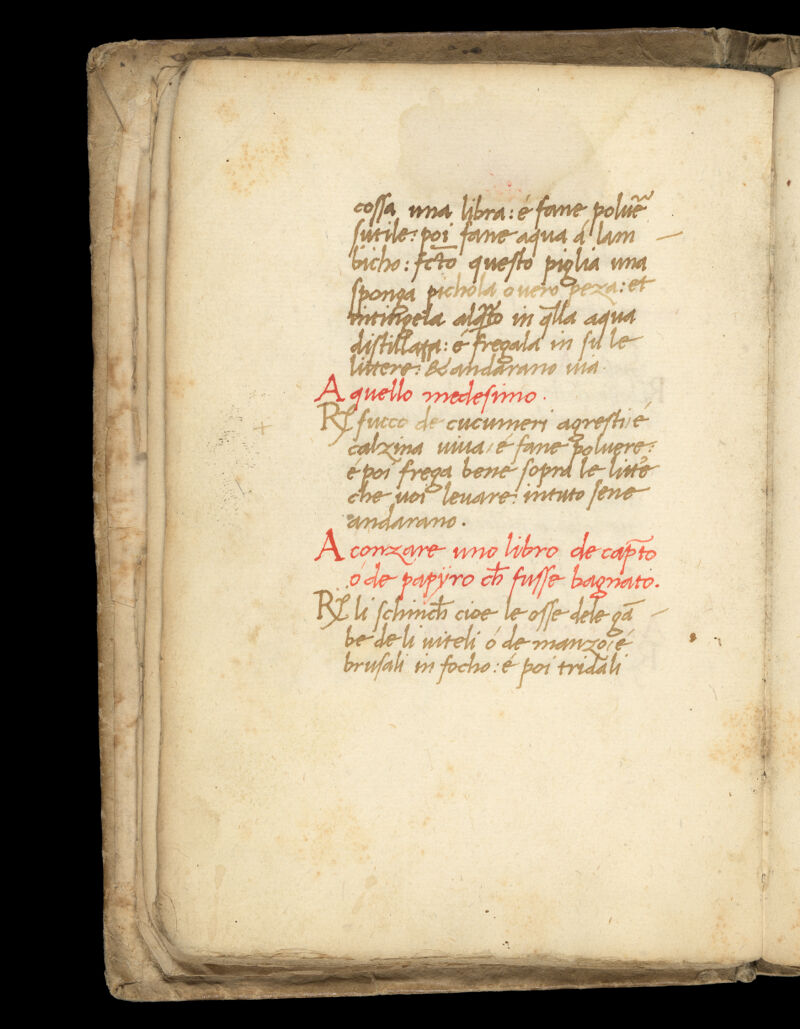 cossa una libra: é fane poluẽ
sutile: poi fane aqua á lam
bicho: fc̃to questo piglia una
sponga pichola ouero peza: et
intingela alq̃to in q̃lla aqua
distillata: é fregala in su le
littere: & andarano uia.
A quello medesimo.
R̃ succo de cucumeri agresti: é
calzina uiua: é fane poluere:
é poi frega bene sopra le litt̃e
che uoi leuare: in tuto sene
andarano.
A conzare uno libro de cap̃to
ó de papÿro ch̃ fusse bagnato.
R̃ li schinch̃ cioe le osse dele gã
be de li uiteli ó de manzo: é
brusali in focho: é poi tridali